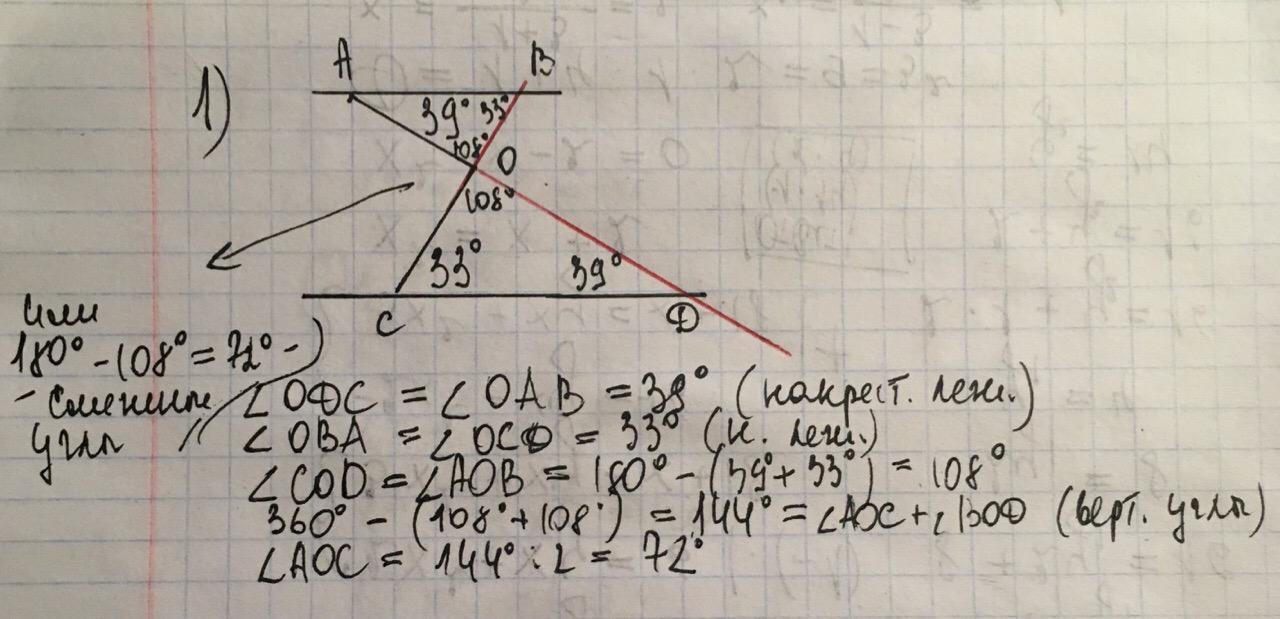 1)
A
B
39° 33°
108°
O
108°
33°
39°
C
D
или
180° - 108° = 72° -
- смежные
углы
∠ODC = ∠OAB = 39° (накрест. леж.)
∠OBA = ∠OCD = 33° (н. леж.)
∠COD = ∠AOB = 180° - (39° + 33°) = 108°
360° - (108° + 108°) = 144° = ∠AOC + ∠BOD (верт. углы)
∠AOC = 144° : 2 = 72°